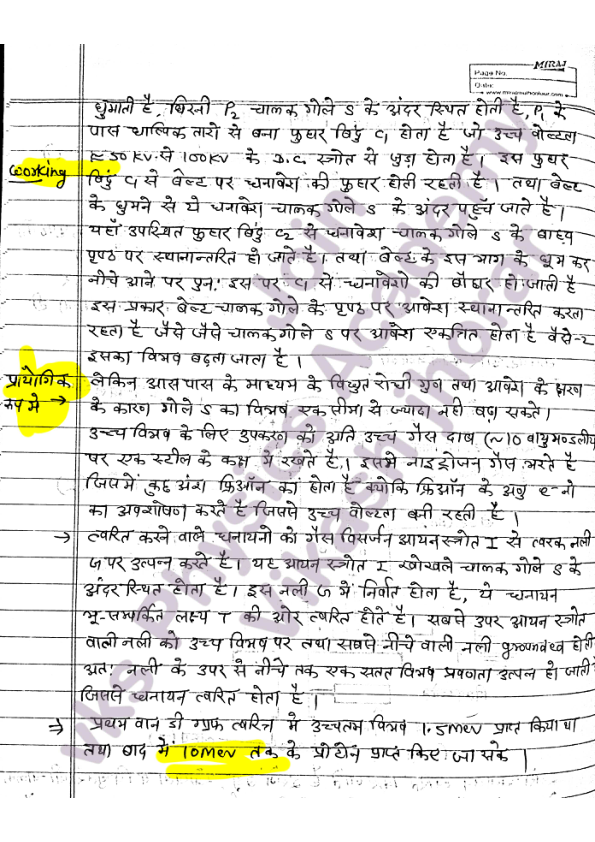 MIRAJ
Page No.
Date
घुमाती है, घिरनी P₂ चालक गोले S के अंदर स्थित होती है, P₁ के
पास धात्विक तारो से बना फुहार बिंदु C₁ होता है जो उच्च वोल्टता
≈ 50 KV से 100KV के D.C. स्त्रोत से जुड़ा होता है। इस फुहार
working
बिंदु C₁ से बेल्ट पर धनावेश की फुहार होती रहती है। तथा बेल्ट
के घुमने से ये धनावेश चालक गोले S के अंदर पहुँच जाते है।
यहाँ उपस्थित फुहार बिंदु C₂ से धनावेश चालक गोले S के बाह्य
पृष्ठ पर स्थानान्तरित हो जाते है। तथा बेल्ट के इस भाग के घूम कर
नीचे आने पर पुनः इस पर C₁ से धनावेशो की बौछार हो जाती है
इस प्रकार बेल्ट चालक गोले के पृष्ठ पर आवेश स्थानान्तरित करता
रहता है जैसे जैसे चालक गोले S पर आवेश एकत्रित होता है वैसे-2
इसका विभव बढ़ता जाता है।
प्रायोगिक
रूप मे →
लेकिन आसपास के माध्यम के विद्युत रोधी गुण तथा आवेश के क्षरण
के कारण गोले S का विभव एक सीमा से ज्यादा नही बढा सकते।
उच्च विभव के लिए उपकरण को अति उच्च गैस दाब (~10 वायुमण्डलीय
पर एक स्टील के कक्ष मे रखते है। इसमे नाइट्रोजन गैस भरते है
जिसमे कुछ अंश फ्रिऑन का होता है क्योकि फ्रिऑन के अणु e-नो
का अवशोषण करते है जिससे उच्च वोल्टता बनी रहती है।
→ त्वरित करने वाले धनायनो को गैस विसर्जन आयन स्त्रोत I से त्वरक नली
G पर उत्पन्न करते है। यह आयन स्त्रोत I खोखले चालक गोले S के
अंदर स्थित होता है। इस नली G मे निर्वात होता है, ये धनायन
भू-सम्पर्कित लक्ष्य T की ओर त्वरित होते है। सबसे उपर आयन स्त्रोत
वाली नली को उच्च विभव पर तथा सबसे नीचे वाली नली grounded होती
अतः नली के उपर से नीचे तक एक सतत विभव प्रवणता उत्पन्न हो जाती है
जिससे धनायन त्वरित होता है।
⇒ प्रथम वान डी ग्राफ त्वरित्र मे उच्चतम विभव 1.5mev प्राप्त किया था
तथा बाद मे 10mev तक के प्रोटोन प्राप्त किए जा सके।
Join
vks Physics Academy
Vikash jhorar